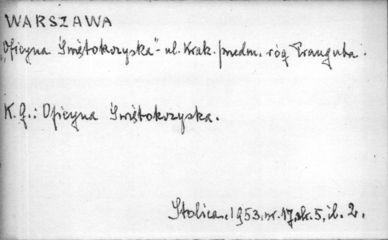 WARSZAWA
„Oficyna Świętokrzyska" - ul. Krak. Przedm. róg Traugutta.
K.g.: Oficyna Świętokrzyska.
Stolica. 1953. nr. 17, str. 5, il. 2.